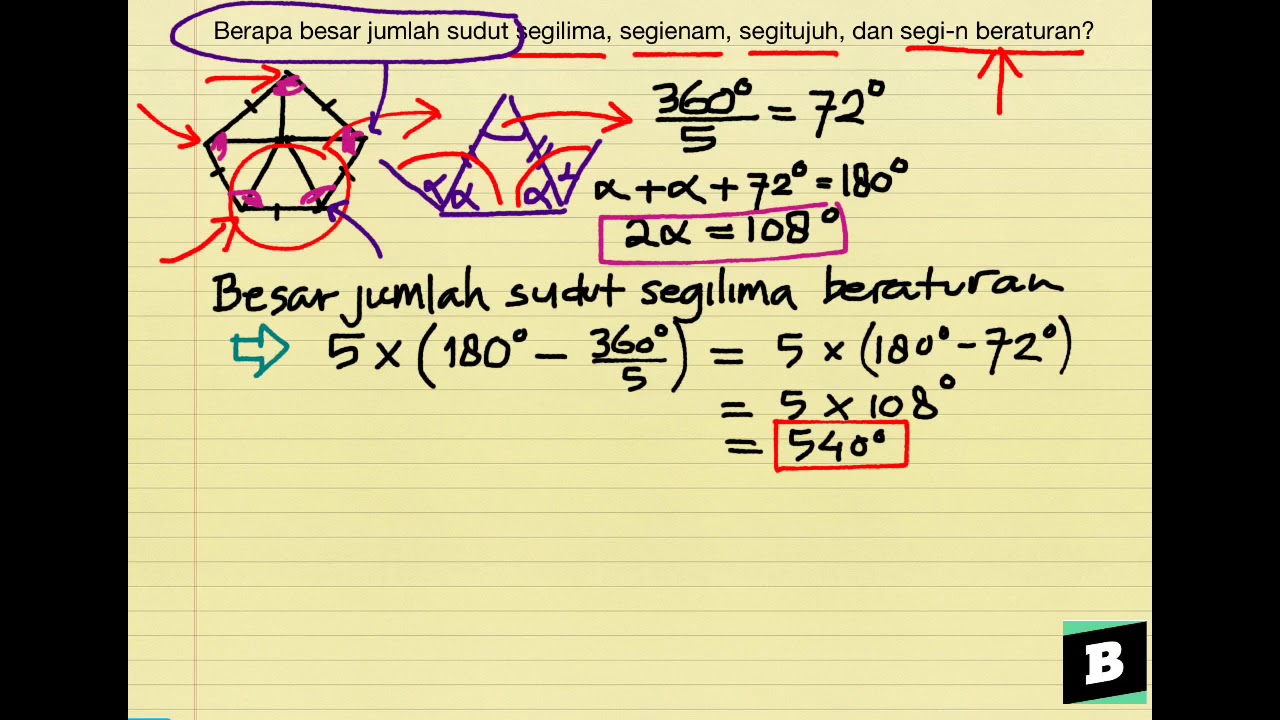 Berapa besar jumlah sudut segilima, segienam, segitujuh, dan segi-n beraturan?
360°/5 = 72°
α α α α
α + α + 72° = 180°
2α = 108°
Besar jumlah sudut segilima beraturan
⇒ 5 × (180° − 360°/5) = 5 × (180° − 72°)
= 5 × 108°
= 540°
B